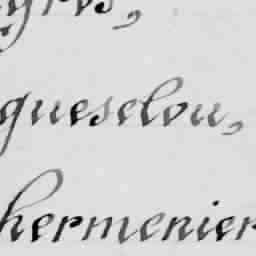 gros,
gueselou,
hermenier